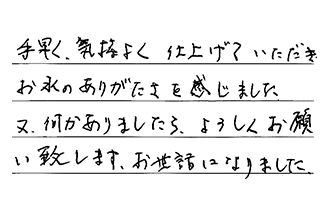 手早く、気持よく仕上げていただき
お水のありがたさを感じました
又、何かありましたら、よろしくお願
い致します、お世話になりました